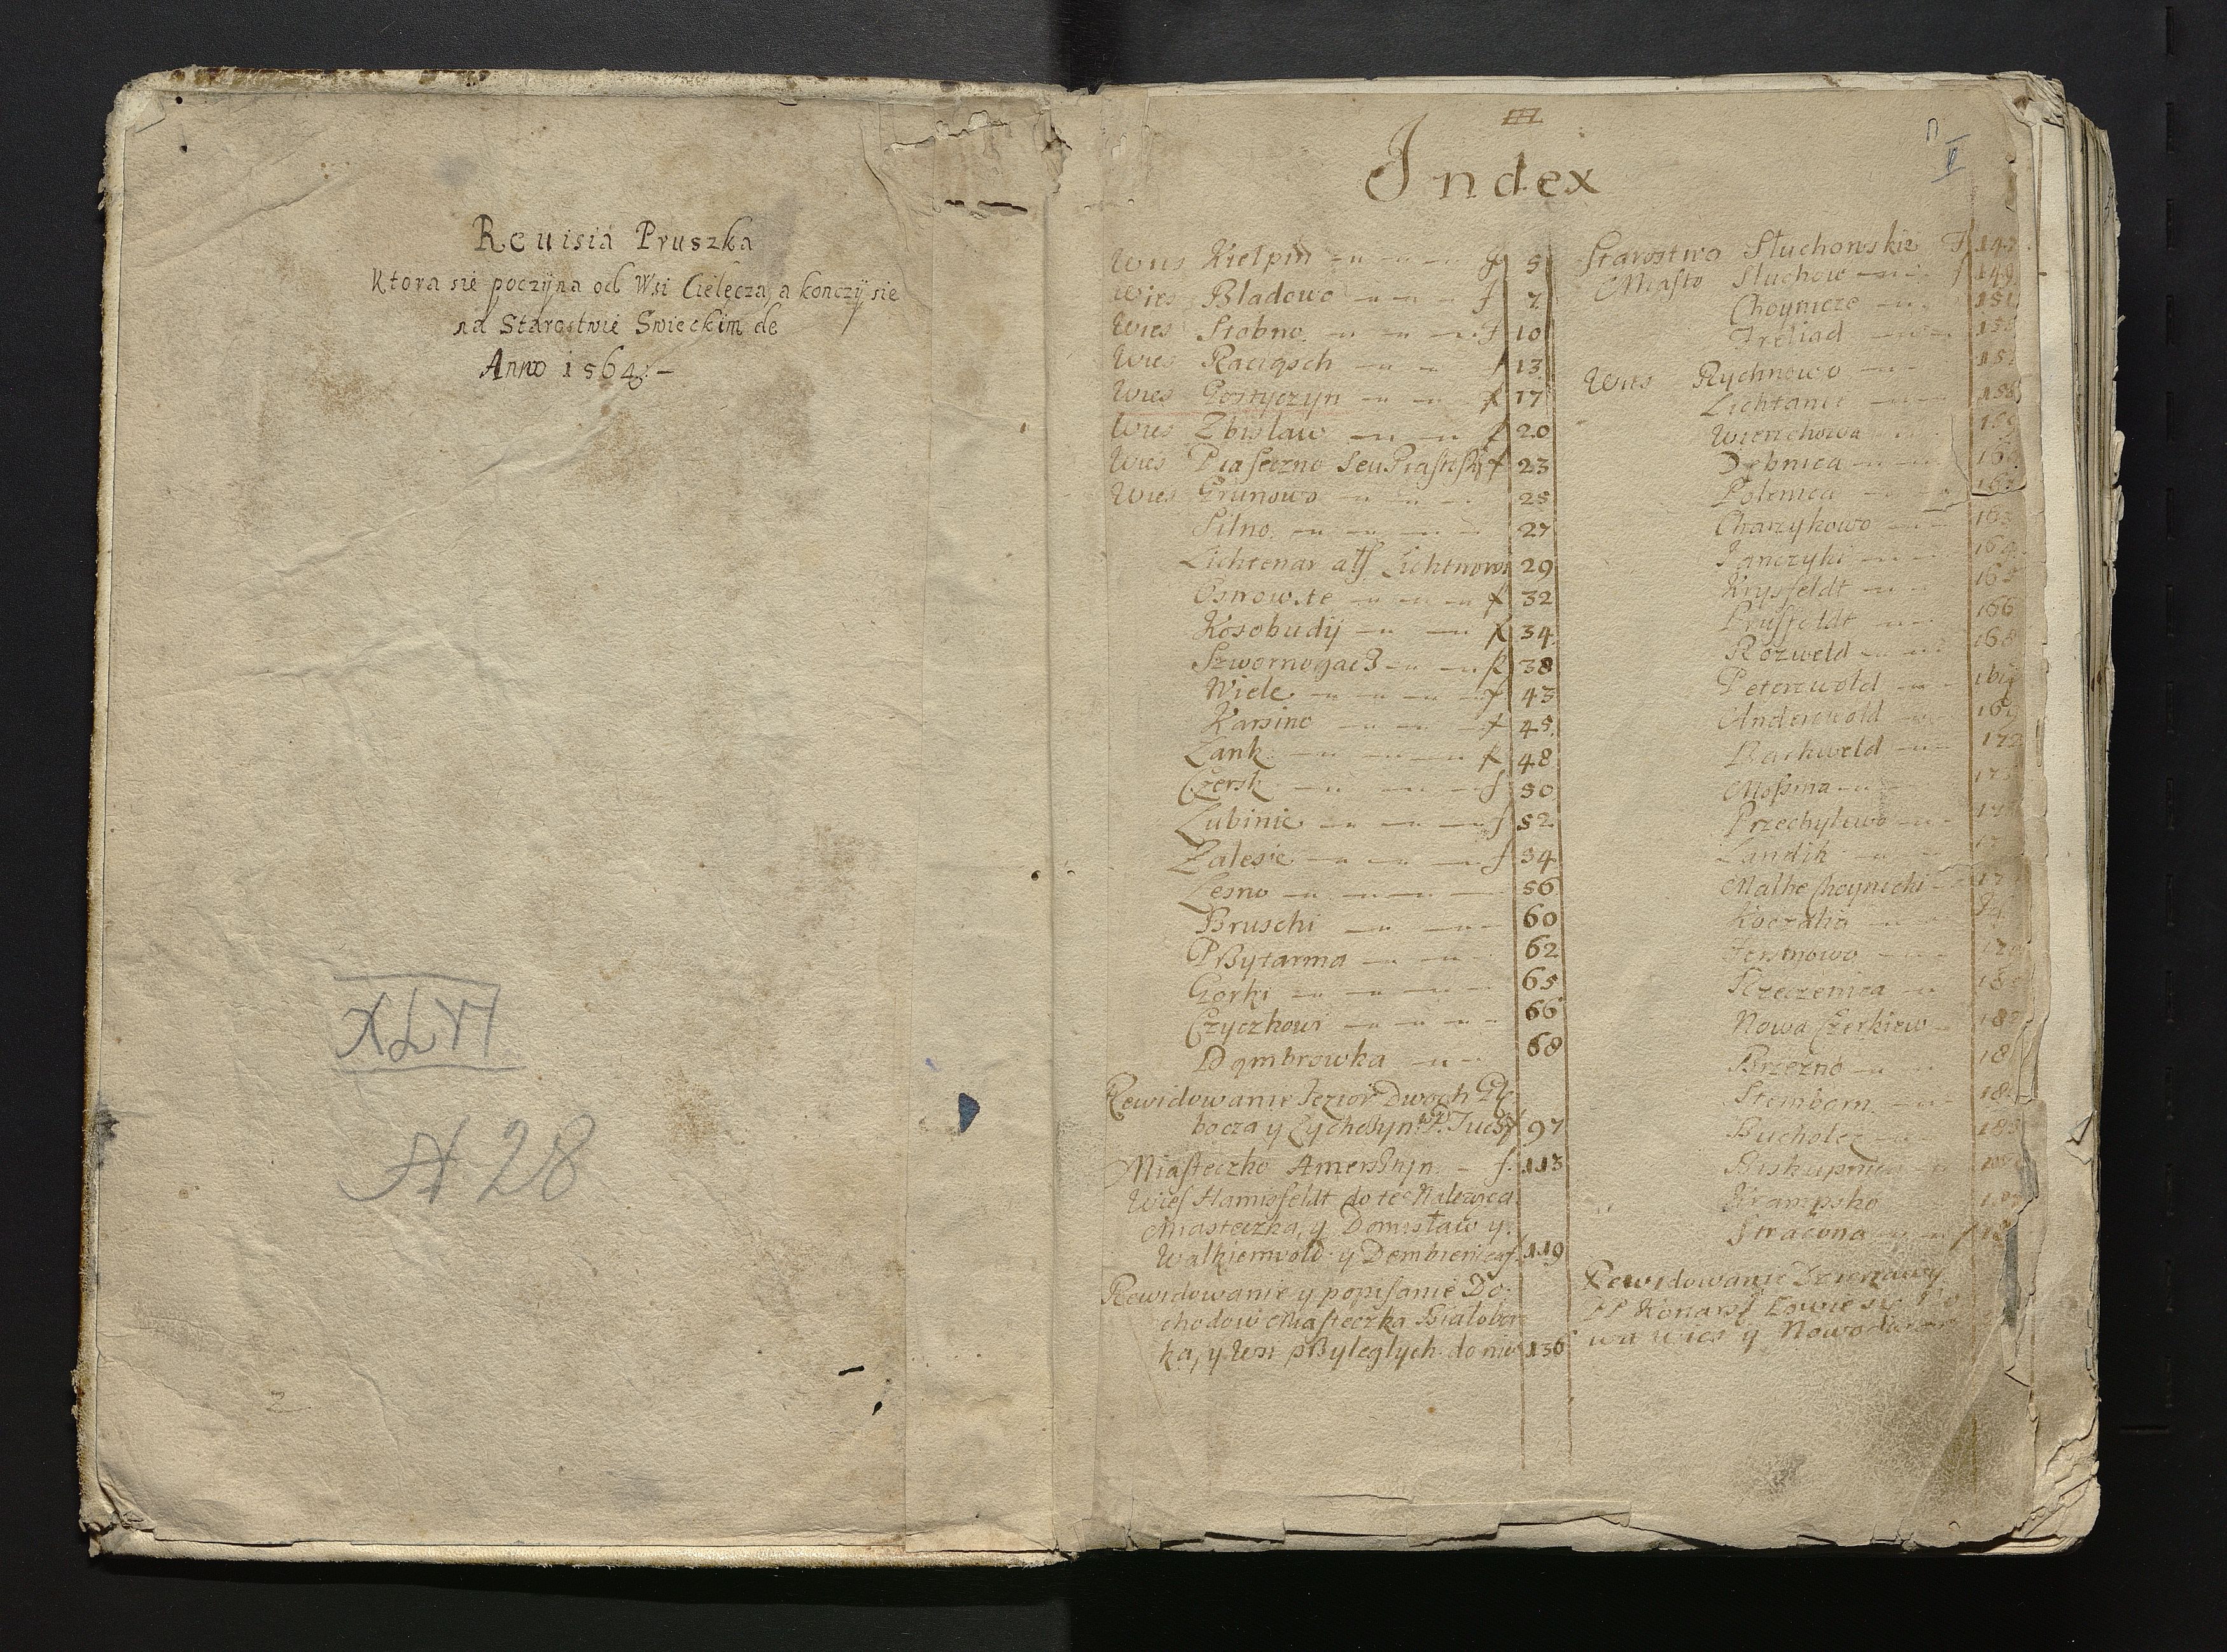 Reuisia Pruszka
Ktora sie poczyna od Wsi Cielęcza, a konczy sie
na Starostwie Swieckim de
Anno 1564. –
XLVI
A 28
III
II
Index
Wies Kielpin f 5
Wies Bladowo f 7
Wies Stobno f 10
Wies Raciąsch f 13
Wies Gostyczyn f 17
Wies Zbislaw f 20
Wies Piaseczno seu f 23
Wies Grunowo 25
Silno 27
Lichtenar als Lichtnowi 29
Osnowite f 32
Kosobudij f 34
Szwornogacz f 38
Wiele f 43
Karsino f 45
Lank f 48
Czersk f 50
Lubinie f 52
Zalesie f 54
Lesno 56
Bruschi 60
Przytarma 62
Gorki 65
Czyczkowi 66
Dąmbrowka 68
Rewidowanie Jezior Dwoch Glę
bocza y f 97
Miasteczko Amersztyn f. 113
Wies Hamisfeldt do te
Miasteczka, y Domisław y
Walkiemvold y Dembienica f. 119
Rewidowanie y popisanie Do
chodow Miasteczka Bialobor
ka, y Wsi przyleglych do nie 136
Starostwo Sluchowskie f 147
Miasto Sluchow f 149
Choynicze 151
Wies Rychnowo
Lichtanie 158
Wierzchowa
Debnica
Polnica
Charzykowo 163
Janczyki 164
Krysfeldt 165
Pruffeldt 166
Rozweld 168
Peterzwold
Anderwold 169
Bachweld 172
Mosina
Przechylewo
Landik
Malhe Choynichi
Koczalia
Rzeczenica
Nowa Czerkiew
Brzezno
Steinborn
Bucholcz
Biskupnica
Krampsko
Stracona f
Rewidowanie Dzierzawy
wa Wies y